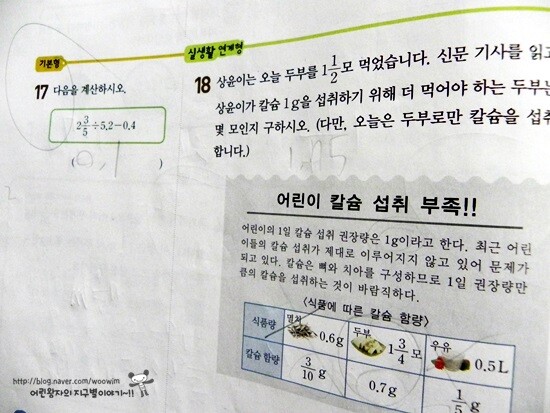 기본형
17 다음을 계산하시오.
2 3/5 ÷5.2-0.4
( 0.1
실생활 연계형
18 상윤이는 오늘 두부를 1 1/2 모 먹었습니다. 신문 기사를 읽고
상윤이가 칼슘 1g을 섭취하기 위해 더 먹어야 하는 두부는
몇 모인지 구하시오. (다만, 오늘은 두부로만 칼슘을 섭취
합니다.)
어린이 칼슘 섭취 부족!!
어린이의 1일 칼슘 섭취 권장량은 1g이라고 한다. 최근 어린
이들의 칼슘 섭취가 제대로 이루어지지 않고 있어 문제가
되고 있다. 칼슘은 뼈와 치아를 구성하므로 1일 권장량만
큼의 칼슘을 섭취하는 것이 바람직하다.
〈식품에 따른 칼슘 함량〉
식품량 멸치 0.6g 두부 1 3/4 모 우유 0.5L
칼슘 함량 3/10 g 0.7g 1/5 g
http://blog.naver.com/woowim
어린왕자의 지구별이야기~!!